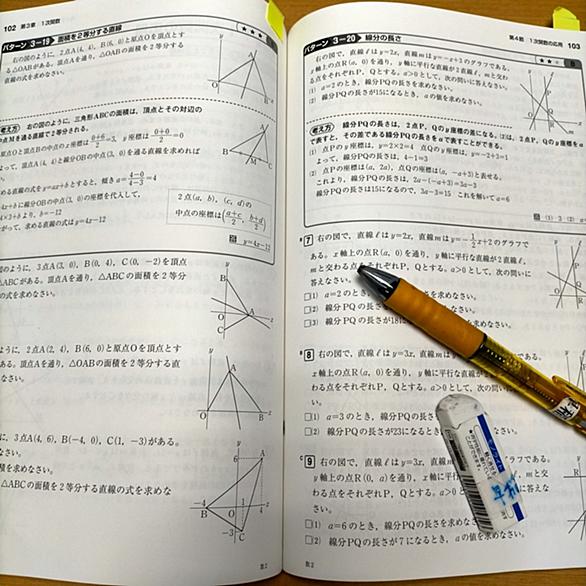 102 第3章 1次関数
パターン 3-19 面積を2等分する直線
★★★
右の図のように，2点A(4, 4)，B(6, 0)と原点Oを頂点とす
る△OABがある。頂点Aを通り，△OABの面積を2等分する
直線の式を求めなさい。
考え方 右の図のように，三角形ABCの面積は，頂点とその対辺の
中点Mを通る直線で2等分される。
原点Oと頂点Bの中点の x座標は (0+6)/2=3, y座標は (0+0)/2=0
よって，頂点A(4, 4)と線分OBの中点(3, 0)を通る直線を求めれば
める直線の式を y=ax+b とすると，傾き a= (4-0)/(4-3) =4
4x+b に線分OBの中点(3, 0)の座標を代入して，
4×3+b より，b=-12
がって，求める直線の式は y=4x-12
2点(a, b)，(c, d)の
中点の座標は ((a+c)/2, (b+d)/2)
答 y=4x-12
の図のように，3点A(3, 0)，B(0, 4)，C(0, -2)を頂点
がある。頂点Aを通り，△ABCの面積を2等分
の式を求めなさい。
ように，2点A(2, 4)，B(6, 0)と原点Oを頂点とす
ある。頂点Aを通り，△OABの面積を2等分する直
なさい。
に，3点A(4, 6)，B(-4, 0)，C(1, -3)がある。
なさい。
△ABCの面積を2等分する直線の式を求めな
数2
第4節 1次関数の応用 103
パターン 3-20 線分の長さ
★★
右の図で，直線ℓはy=2x，直線mはy=-x+3のグラフである。
x軸上の点R(a, 0)を通り，y軸に平行な直線が2直線ℓ，mと交わ
る点をそれぞれP，Qとする。a>0として，次の問いに答えなさい。
(1) a=2のとき，線分PQの長さを求めなさい。
(2) 線分PQの長さが15になるとき，aの値を求めなさい。
考え方 線分PQの長さは，2点P，Qのy座標の差になる。(2)は，2点P，Qのy座標をa
で表すと，その差である線分PQの長さをaで表すことができる。
(1) 点Pのy座標は，y=2×2=4 点Qのy座標は，y=-2+3=1
よって，線分PQの長さは，4-1=3
(2) 点Pの座標は(a, 2a)，点Qの座標は(a, -a+3)と表せる。
これより，線分PQの長さは，2a-(-a+3)=3a-3
線分PQの長さは15になるので，3a-3=15 これを解いてa=6
答 (1) 3 (2)
7 右の図で，直線ℓはy=2x，直線mはy=-1/2x+2のグラフで
ある。x軸上の点R(a, 0)を通り，y軸に平行な直線が2直線ℓ，
mと交わる点をそれぞれP，Qとする。a>0として，次の問いに
答えなさい。
□(1) a=2のとき，
□(2) 線分PQの
さを求めなさい。
□(3) 線分PQの長さが18に
B 8 右の図で，直線ℓはy=3x，直線mは
x軸上の点R(a, 0)を通り，y軸に平行な直線が
わる点をそれぞれP，Qとする。a>0として，次の問い
い。
□(1) a=3のとき，線分PQの長さ
□(2) 線分PQの長さが23になるとき，
C 9 右の図で，直線ℓはy=3x，直線m
y軸上の点R(0, a)を通り，x軸に平行
わる点をそれぞれP，Qとする。a>0と
い。
□(1) a=6のとき，線分PQの長さを求めなさ
□(2) 線分PQの長さが7になるとき，aの値を求めなさい。
数2